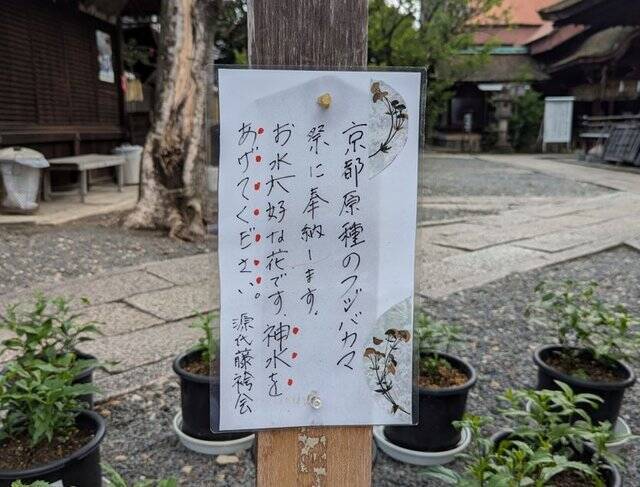 京都原種のフジバカマ
祭に奉納します。
お水大好な花です。神水を
あげてください。
源氏藤袴会